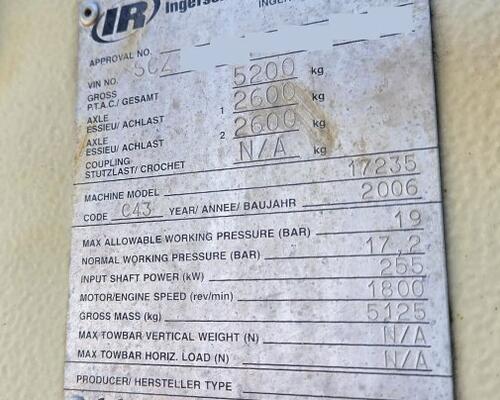 IR Ingerso
INGER
APPROVAL NO.
VIN NO. SCZ
GROSS 5200 kg
P.T.A.C./ GESAMT
AXLE 1 2600 kg
ESSIEU/ ACHLAST
AXLE 2 2600 kg
ESSIEU/ ACHLAST
COUPLING N/A kg
STUTZLAST/ CROCHET
MACHINE MODEL 17235
CODE C43 YEAR/ ANNEE/ BAUJAHR 2006
MAX ALLOWABLE WORKING PRESSURE (BAR) 19
NORMAL WORKING PRESSURE (BAR) 17,2
INPUT SHAFT POWER (kW) 255
MOTOR/ENGINE SPEED (rev/min) 1800
GROSS MASS (kg) 5125
MAX TOWBAR VERTICAL WEIGHT (N) N/A
MAX TOWBAR HORIZ. LOAD (N) N/A
PRODUCER/ HERSTELLER TYPE